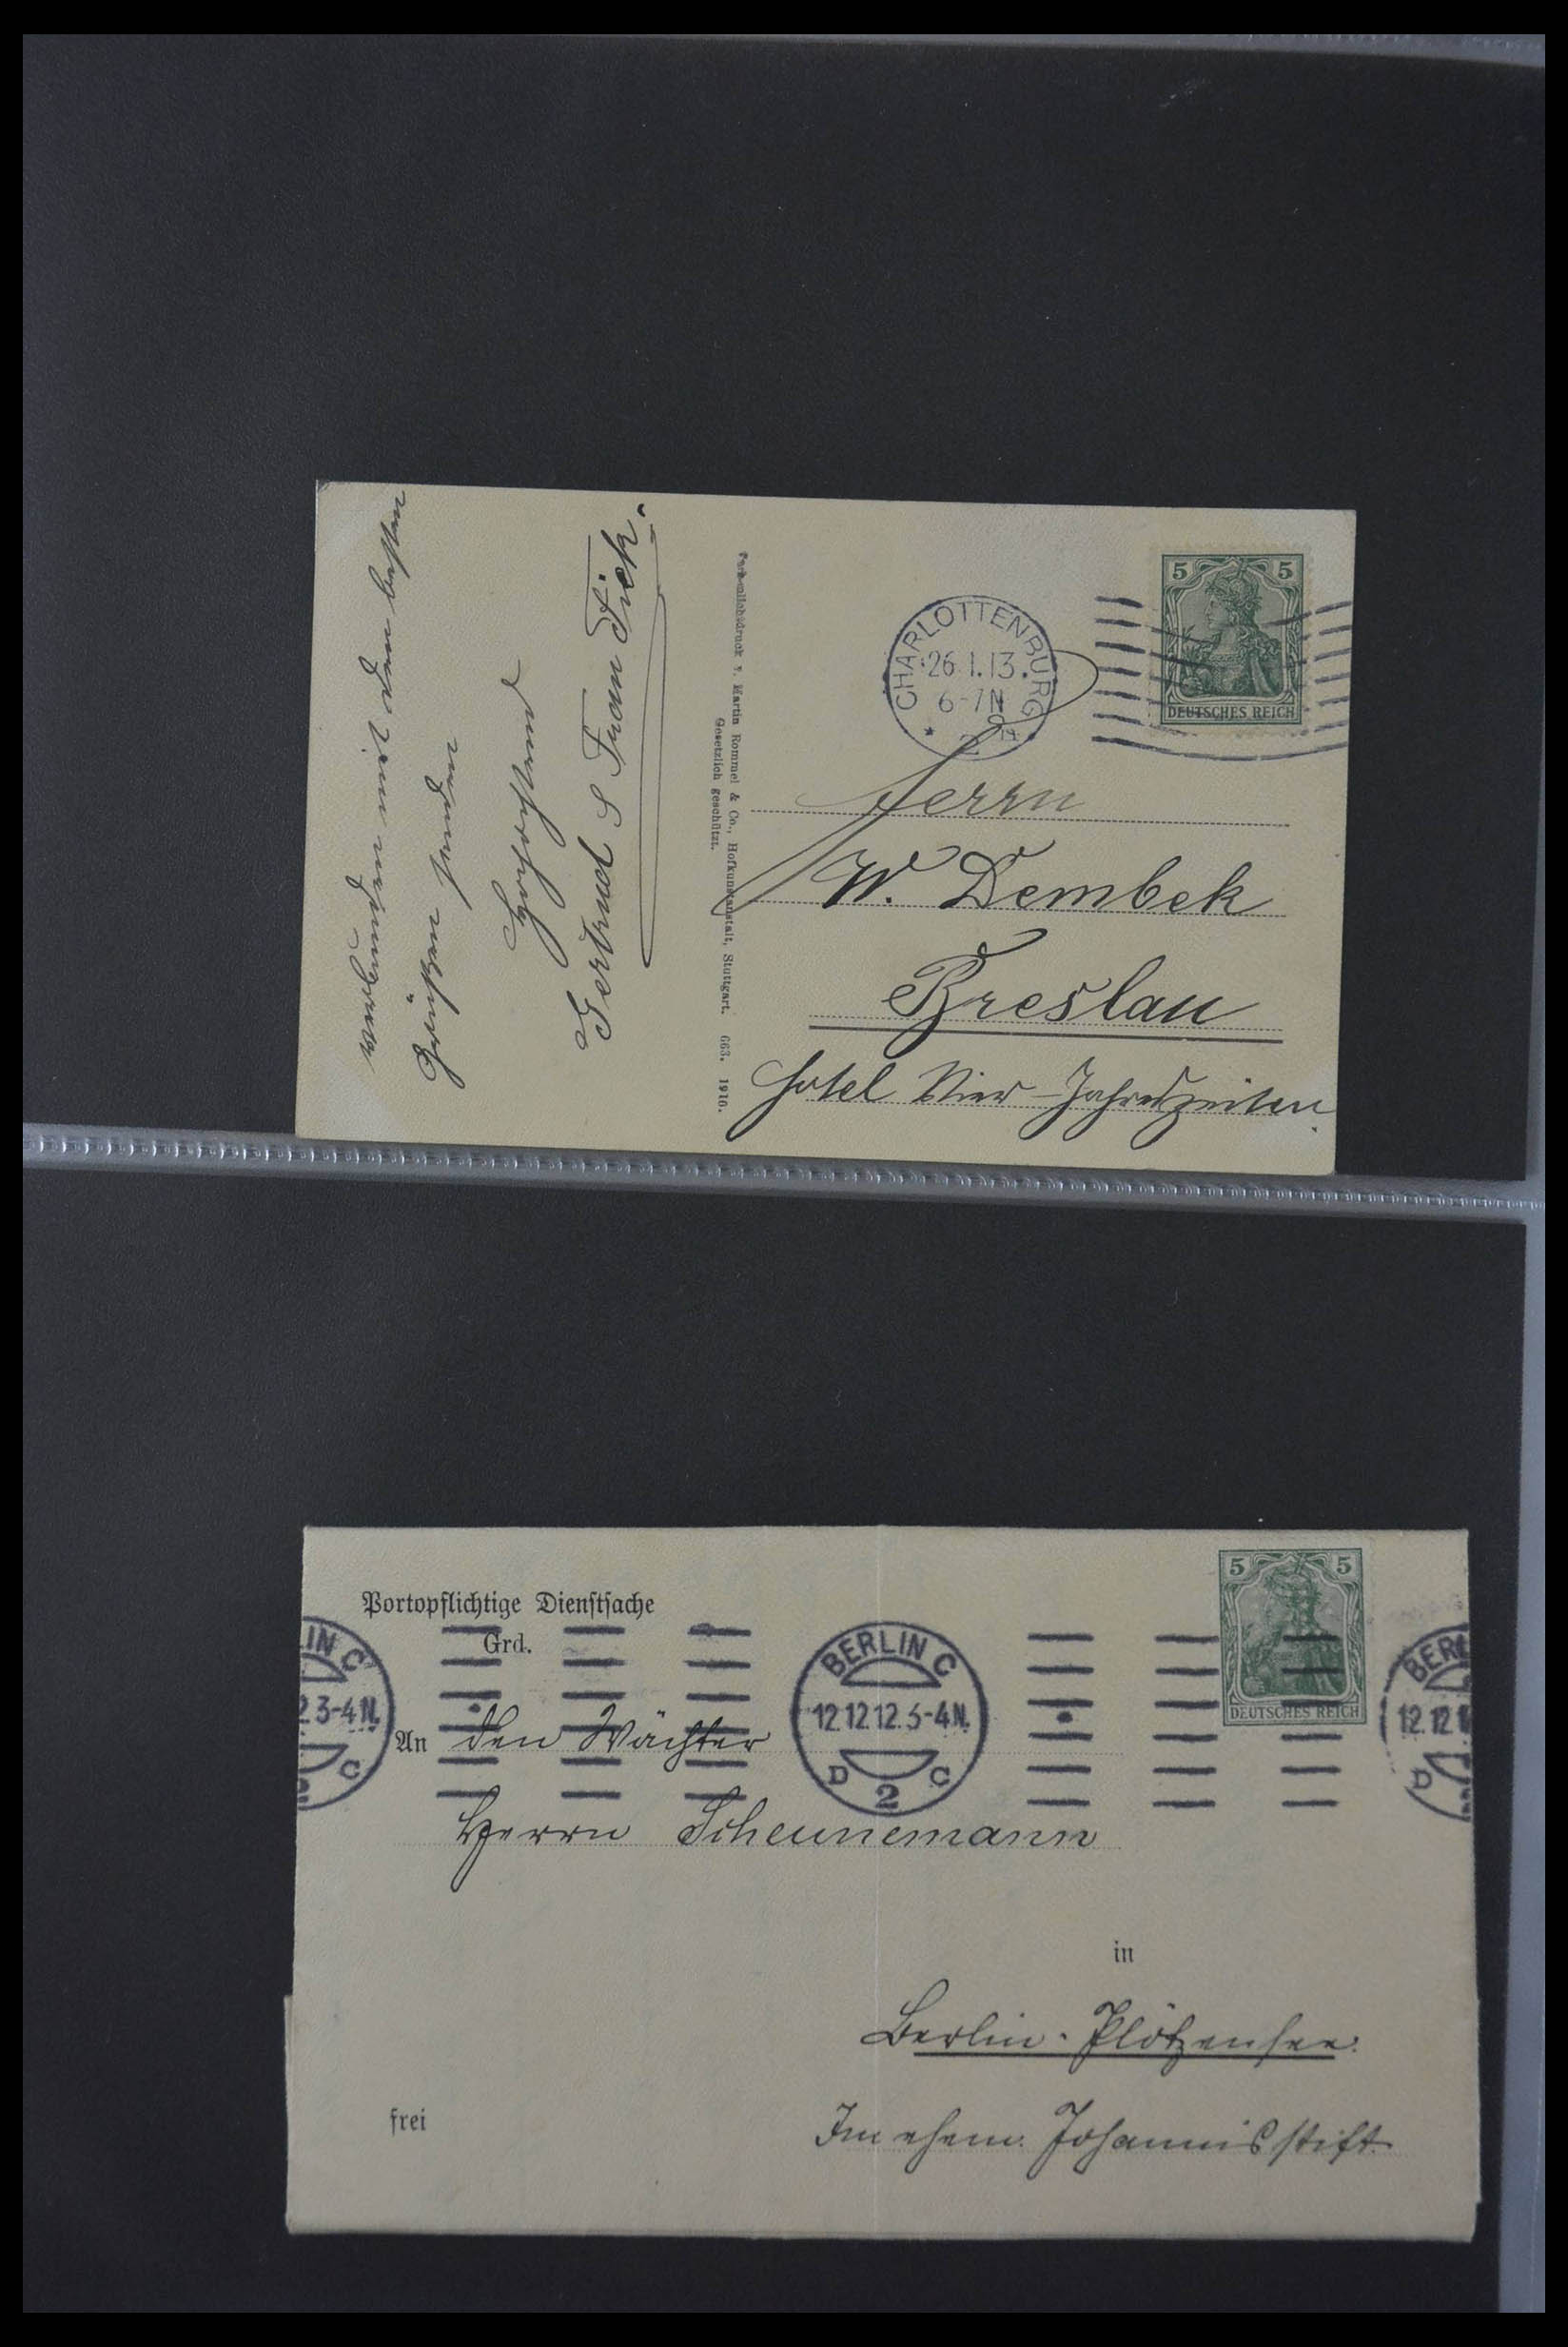 verbunden mit den besten
Grüßen senden
Hochachtend
Gertrud & Frau Fick.
v. Martin Rommel & Co., Hofkunstanstalt, Stuttgart. 663. 1910.
Gesetzlich geschützt.
CHARLOTTENBURG
26.1.13.
6-7N
* 2
5 5
DEUTSCHES REICH
Herrn
W. Dembek
Breslau
Hotel Vier-Jahreszeiten.
Portopflichtige Dienstsache
Grd.
5 5
DEUTSCHES REICH
IN C
2 3-4N.
C
BERLIN C
12.12.12.3-4N.
D 2 C
BERL
12.12.1
D
An den Wächter
Herrn Scheunemann
in
Berlin-Plötzensee.
Im ehem. Johannisstift.
frei